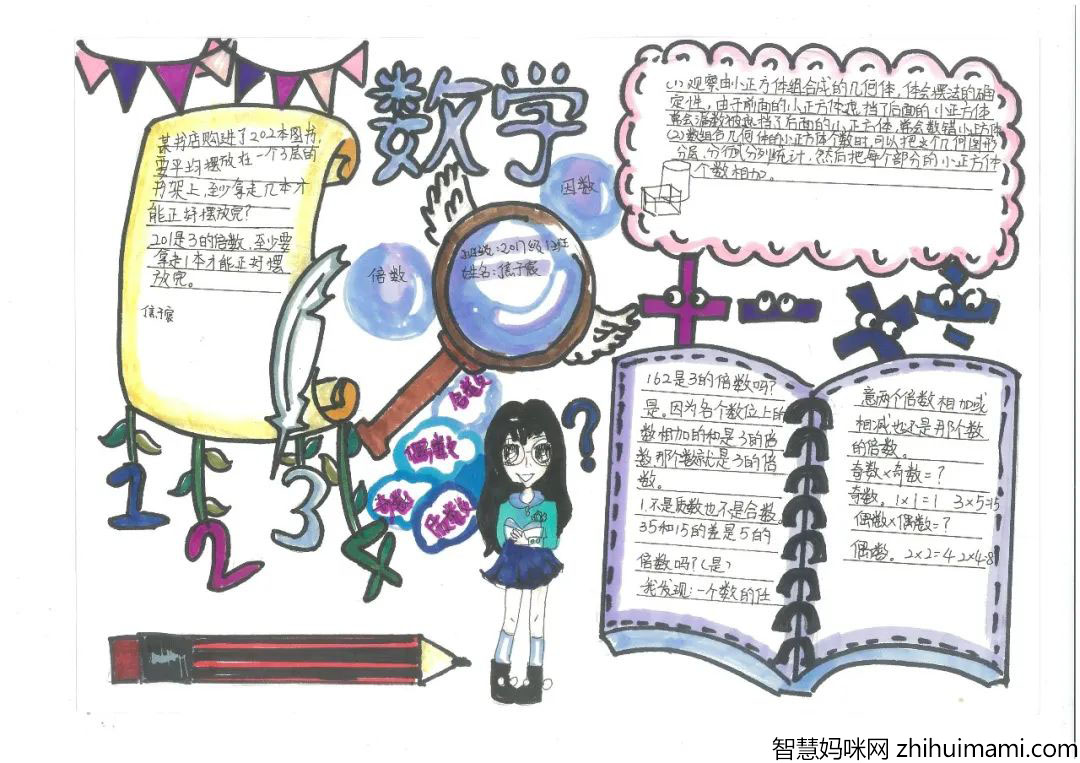 数学
某书店购进了202本图书,
要平均摆放在一个3层的
书架上,至少拿走几本才
能正好摆放完?
201是3的倍数,至少要
拿走1本才能正好摆
放完。
因数
倍数
班级:2017级12班
姓名:
合数
偶数
奇数
质数
1
2
3
4
?
(1)观察由小正方体组合成的几何体,体会摆法的确
定性,由于前面的小正方体遮挡了后面的小正方体
(2)数组合几何体的小正方体个数时,可以把这个几何图形
分层、分行或分列统计,然后把每个部分的小正方体
个数相加。
162是3的倍数吗?
是。因为各个数位上的
数相加的和是3的倍
数那个数就是3的倍
数。
1不是质数也不是合数。
35和15的差是5的
倍数吗?(是)
我发现:一个数的任
意两个倍数相加或
相减也还是那个数
的倍数。
奇数×奇数=?
奇数。1×1=1 3×5=15
偶数×偶数=?
偶数。2×2=4 2×4=8
智慧妈咪网 zhihuimami.com